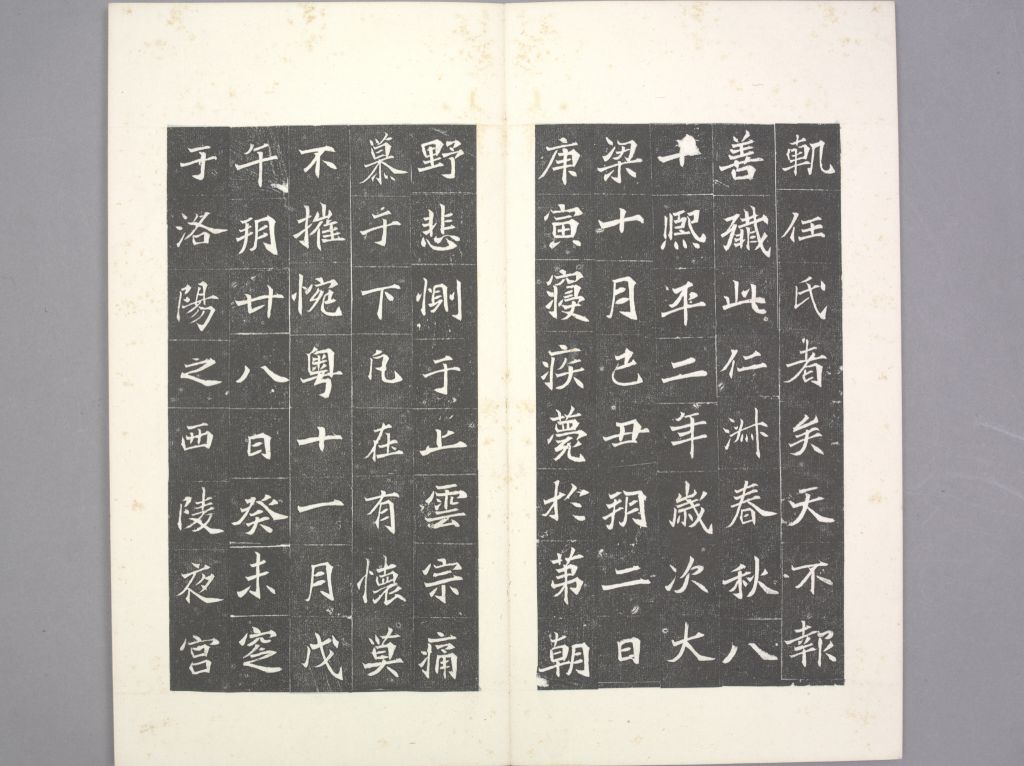 軌任氏者矣天不報
善殲此仁淋春秋八
十熈平二年歲次大
梁十月己丑玥二日
庚寅寑疾薨於苐朝
野悲惻于上雲宗痛
慕于下凡在有懷莫
不摧惋粤十一月戊
午玥廿八日癸未窆
于洛陽之西陵夜宫